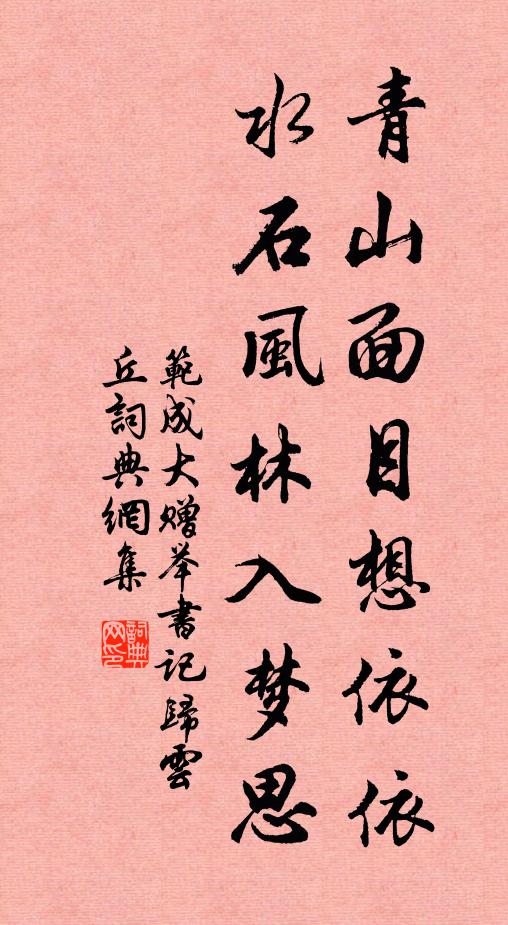 青山面目想依依
水石風林入梦思
範成大赠举書記歸雲
丘詞典網集
詞典网印